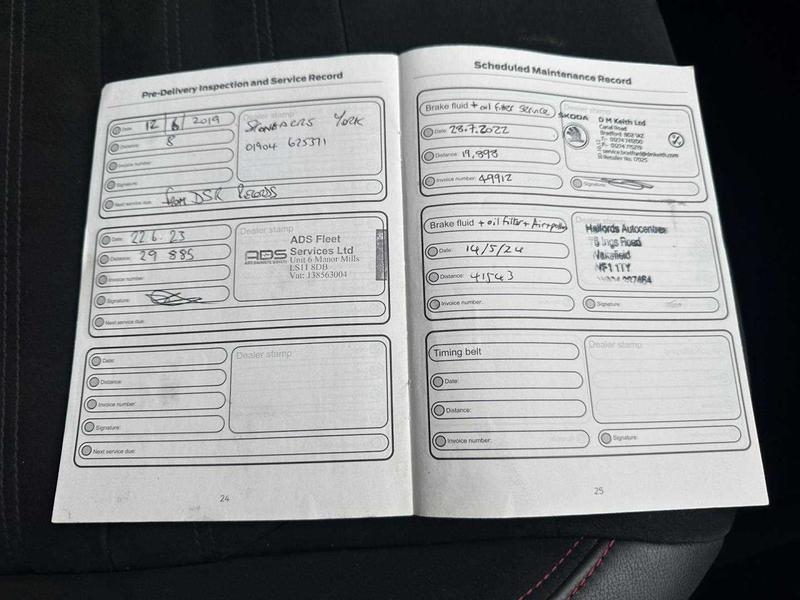 Pre-Delivery Inspection and Service Record
Date: 12 6 2019
Distance: 8
Invoice number:
Signature:
Next service due: from DSR RECORDS
YORK
01904 625371
Date: 22.6.23
Distance: 29 885
Invoice number:
Signature:
Next service due:
Dealer stamp
ADS
ADS Fleet
Services Ltd
Unit 6 Manor Mills
LS11 8DB
Vat: 138563004
Date:
Distance:
Invoice number:
Signature:
Next service due:
Dealer stamp
24
Scheduled Maintenance Record
Brake fluid + oil filter service
Date: 28.7.2022
Distance: 19,898
Invoice number: 49912
Dealer stamp
ŠKODA
D M Keith Ltd
Canal Road
Bradford BD2 1AZ
Signature:
Brake fluid + oil filter +
Date: 14/5/24
Distance: 41543
Invoice number:
Dealer stamp
Halfords Autocentres
Ings Road
Wakefield
WF1 1TY
Signature:
Timing belt
Date:
Distance:
Invoice number:
Dealer stamp
Signature:
25